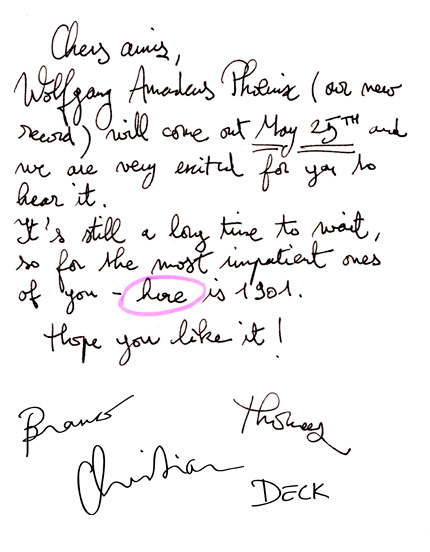 Chers amis,
Wolfgang Amadeus Phoenix (our new
record) will come out May 25TH and
we are very excited for you to
hear it.
It's still a long time to wait,
so for the most impatient ones
of you - here is 1901.
Hope you like it!
Branco Thomas
Christian DECK